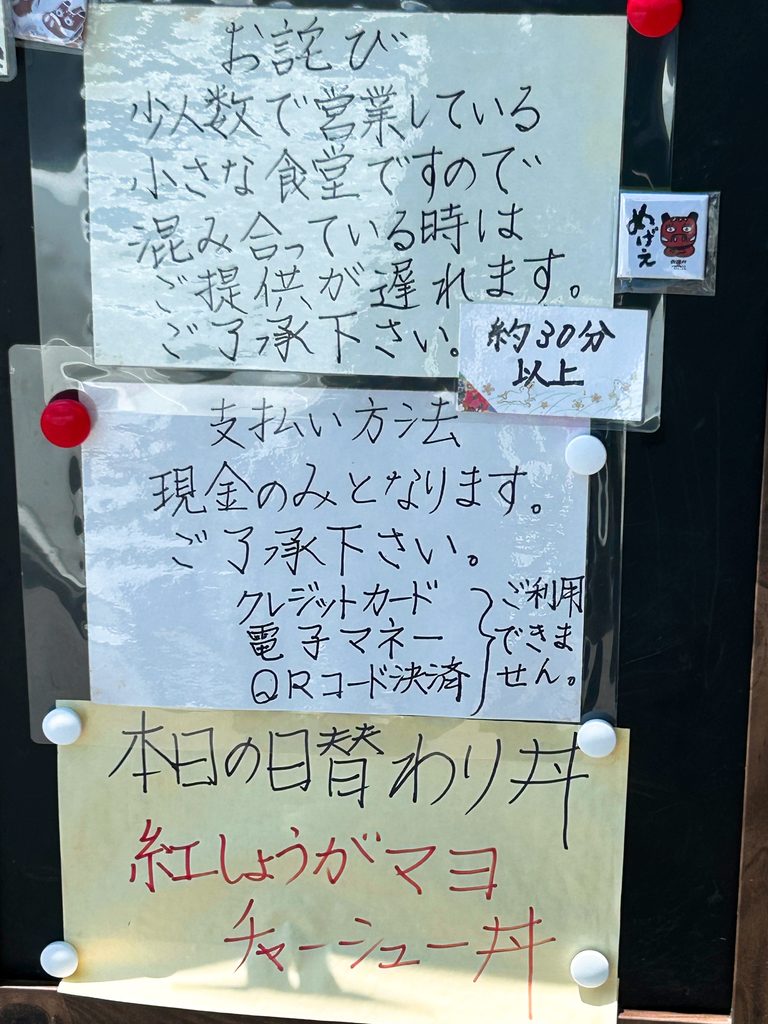 お詫び
少人数で営業している
小さな食堂ですので
混み合っている時は
ご提供が遅れます。
ご了承下さい。
約30分
以上
めげえ
支払い方法
現金のみとなります。
ご了承下さい。
クレジットカード
電子マネー
QRコード決済
ご利用
できま
せん。
本日の日替わり丼
紅しょうがマヨ
チャーシュー丼